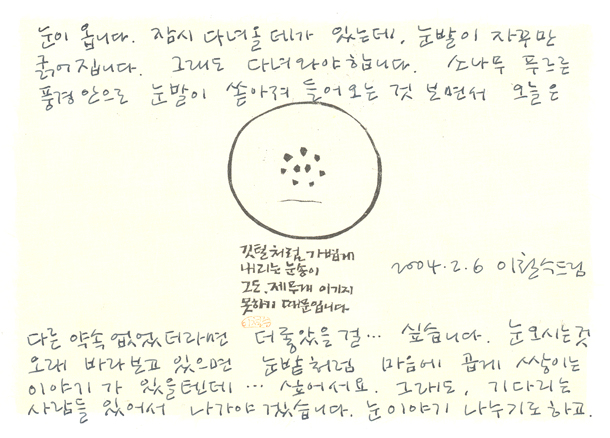 눈이 옵니다. 잠시 다녀올 데가 있는데, 눈발이 자꾸만
굵어집니다. 그래도 다녀와야 합니다. 소나무 푸르른
풍경 안으로 눈발이 쏟아져 들어오는 것 보면서 오늘은
깃털처럼 가볍게
내리는 눈송이
그도, 제 무게 이기지
못하기 때문입니다
2004. 2. 6 이철수드림
다른 약속 없었더라면 더 좋았을 걸… 싶습니다. 눈 오시는 것
오래 바라보고 있으면 눈발처럼 마음에 곱게 쌓이는
이야기가 있을텐데… 싶어서요. 그래도, 기다리는
사람들 있어서 나가야겠습니다. 눈 이야기 나누기로 하고.